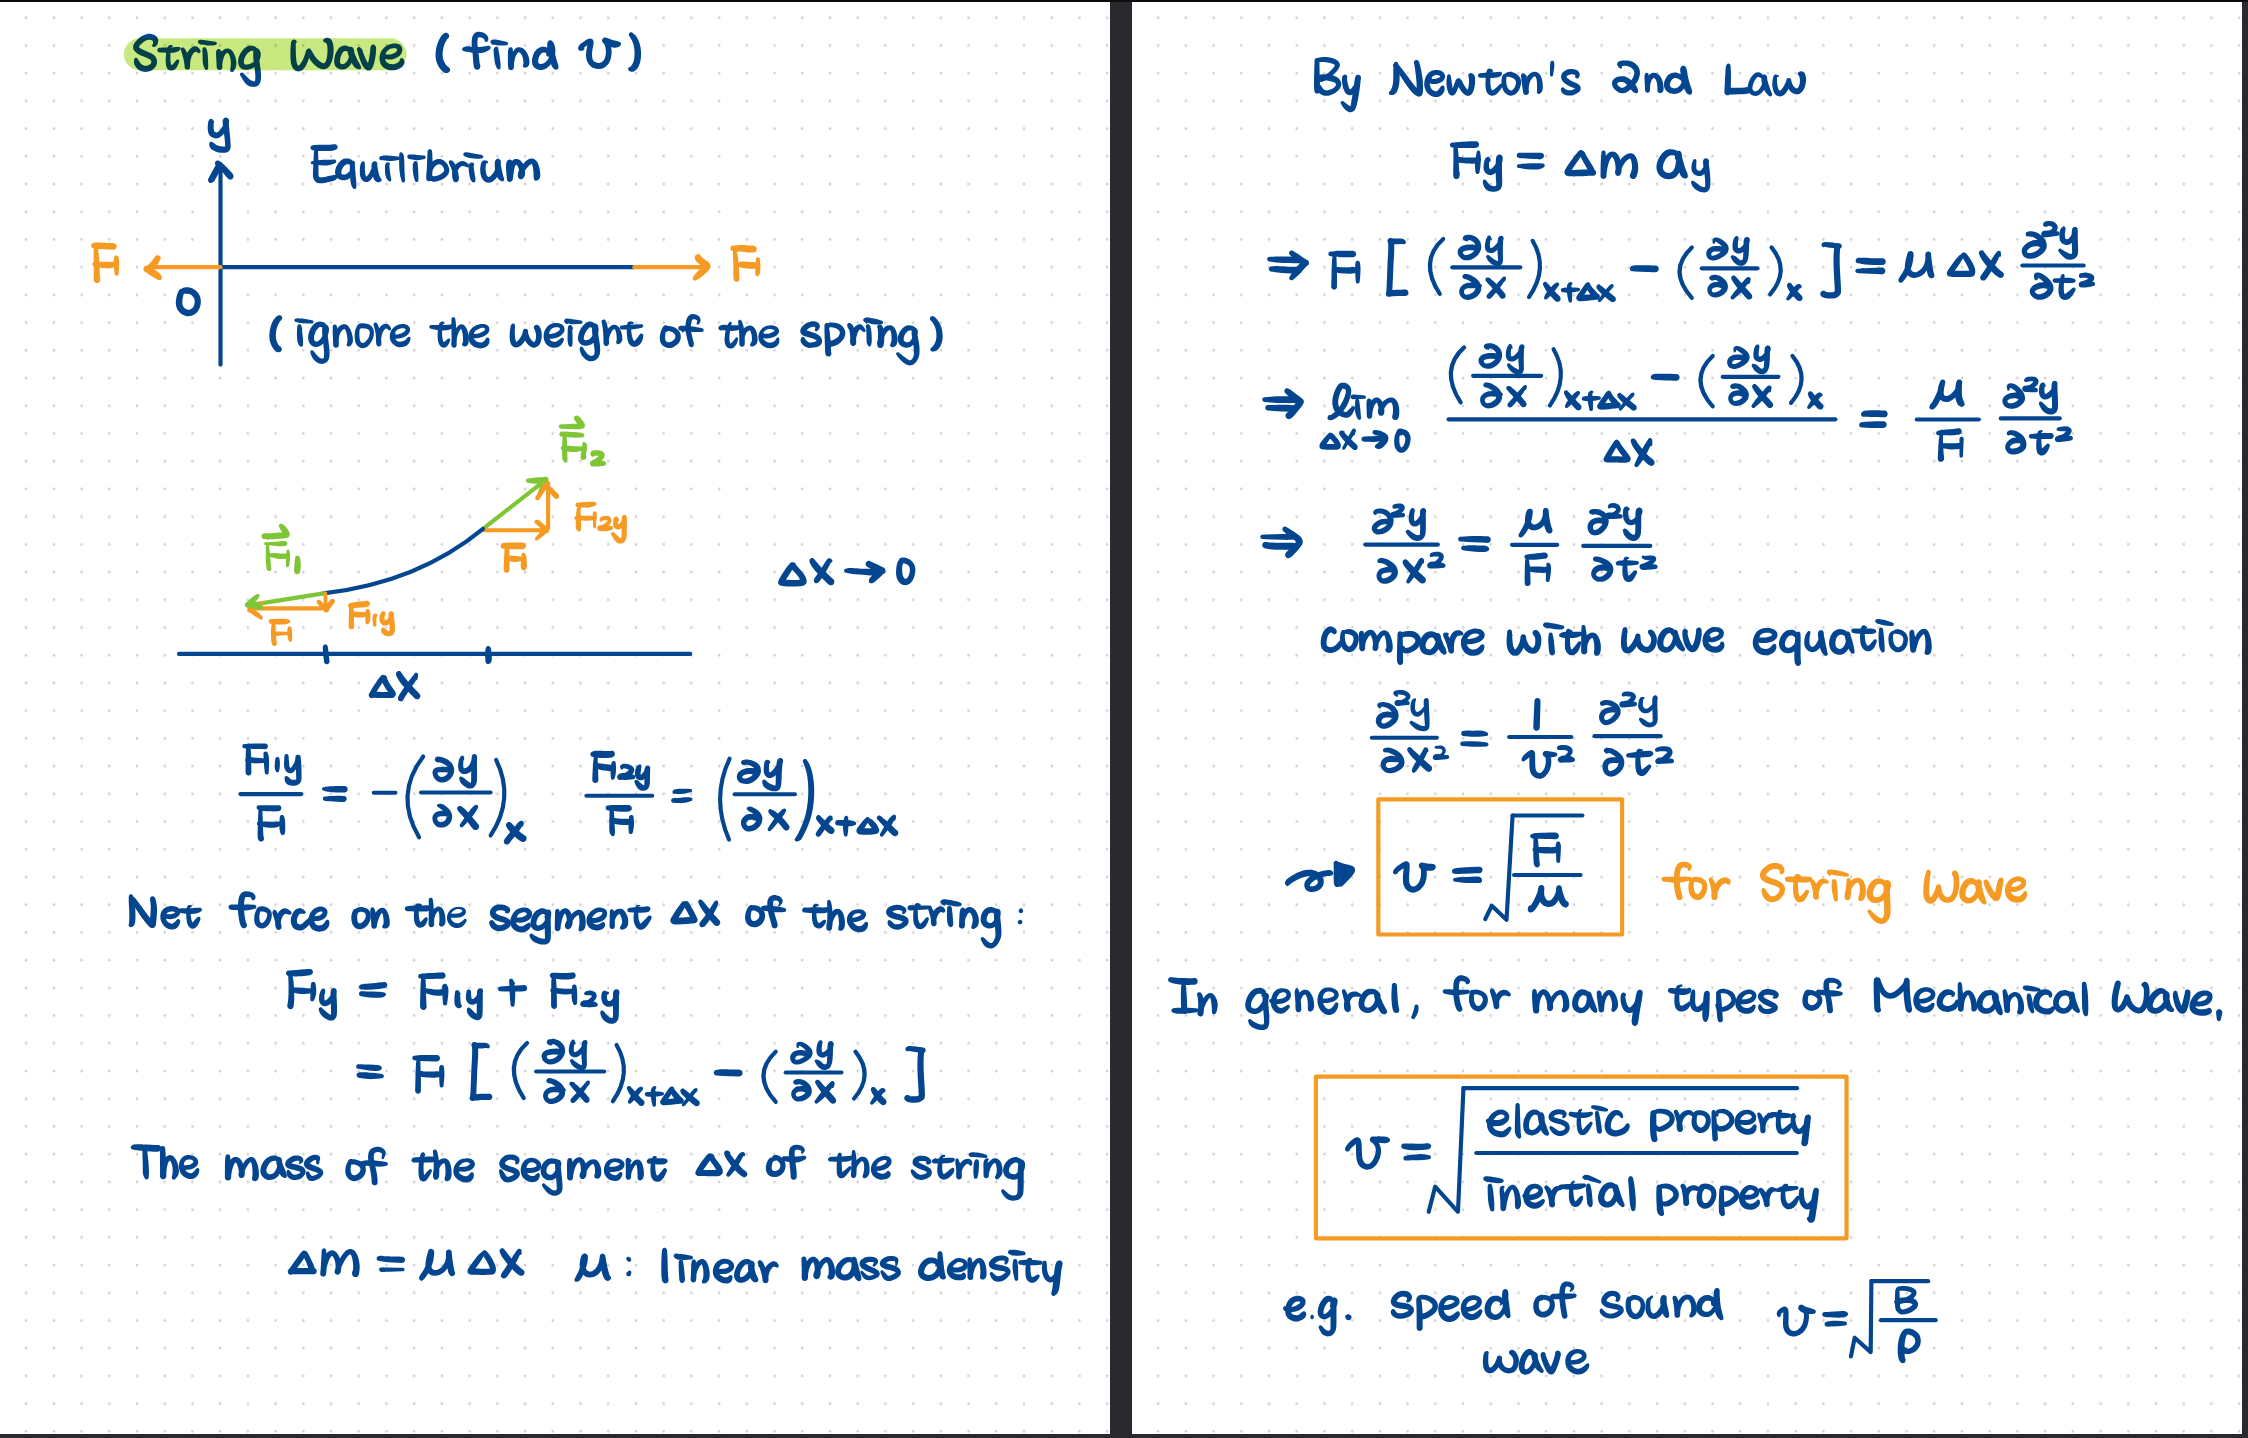 String Wave (find v)
y
Equilibrium
F F
O
(ignore the weight of the spring)
F⃗₂
F₂y
F⃗₁
F
Δx → 0
F₁y
F
Δx
F₁y/F = −(∂y/∂x)ₓ F₂y/F = (∂y/∂x)ₓ₊Δₓ
Net force on the segment Δx of the string :
Fy = F₁y + F₂y
= F [ (∂y/∂x)ₓ₊Δₓ − (∂y/∂x)ₓ ]
The mass of the segment Δx of the string
Δm = μ Δx μ : linear mass density
By Newton's 2nd Law
Fy = Δm ay
⇒ F [ (∂y/∂x)ₓ₊Δₓ − (∂y/∂x)ₓ ] = μ Δx ∂²y/∂t²
⇒ lim Δx→0 ((∂y/∂x)ₓ₊Δₓ − (∂y/∂x)ₓ)/Δx = μ/F ∂²y/∂t²
⇒ ∂²y/∂x² = μ/F ∂²y/∂t²
compare with wave equation
∂²y/∂x² = 1/v² ∂²y/∂t²
v = √(F/μ) for String Wave
In general, for many types of Mechanical Wave,
v = √(elastic property/inertial property)
e.g. speed of sound v = √(B/ρ)
wave